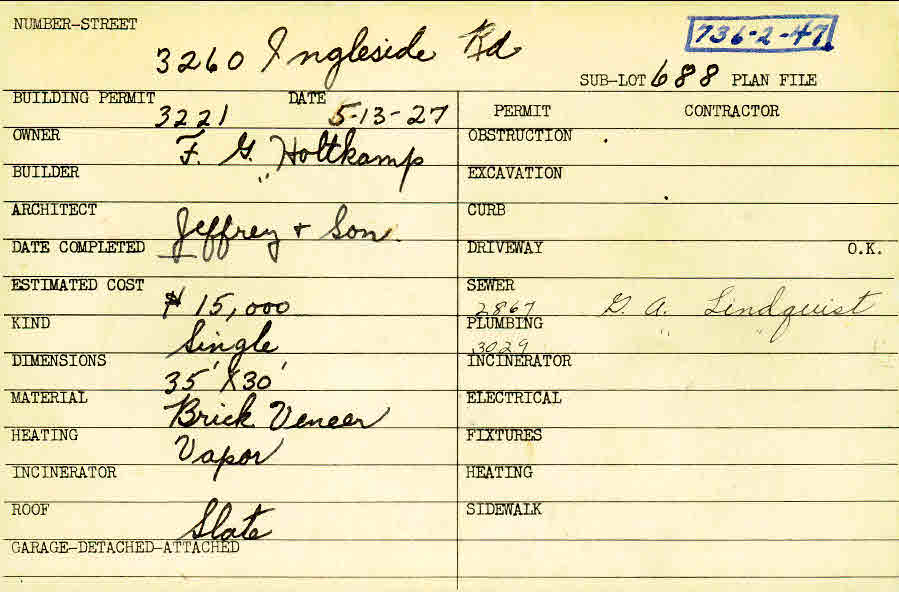 NUMBER-STREET
3260 Ingleside Rd
736-2-47
SUB-LOT 688 PLAN FILE
BUILDING PERMIT DATE
3221 5-13-27
PERMIT CONTRACTOR
OWNER
F. G. Holtkamp
OBSTRUCTION
BUILDER
"
EXCAVATION
ARCHITECT
Jeffrey + Son.
CURB
DATE COMPLETED
DRIVEWAY O.K.
ESTIMATED COST
$ 15,000
SEWER
2867 G. A. Lindquist
KIND
Single
PLUMBING
3029 " "
DIMENSIONS
35' X 30'
INCINERATOR
MATERIAL
Brick Veneer
ELECTRICAL
HEATING
Vapor
FIXTURES
INCINERATOR
HEATING
ROOF
Slate
SIDEWALK
GARAGE-DETACHED-ATTACHED